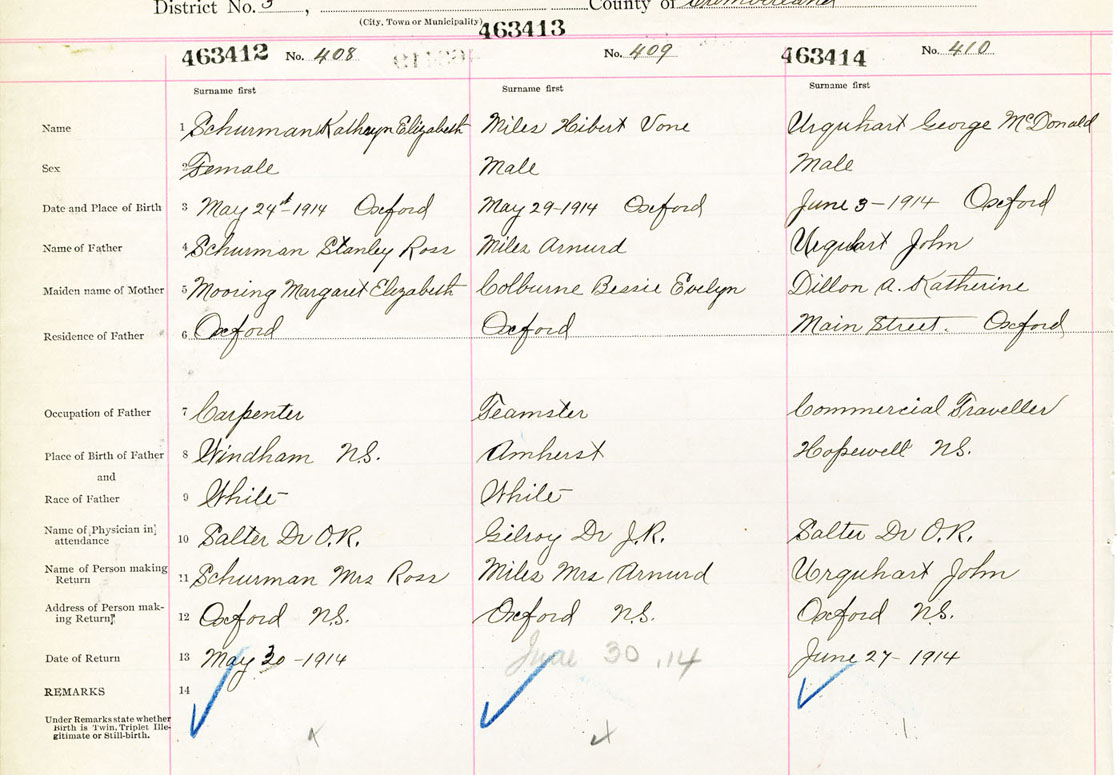 District No. 3, County of Cumberland
(City, Town or Municipality)
463412 No. 408 463413 No. 409 463414 No. 410
Surname first Surname first Surname first
Name 1 Schurman Kathryn Elizabeth Miles Hibert Vone Urquhart George McDonald
Sex 2 Female Male Male
Date and Place of Birth 3 May 24th-1914 Oxford May 29-1914 Oxford June 3-1914 Oxford
Name of Father 4 Schurman Stanley Ross Miles Arnurd Urquhart John
Maiden name of Mother 5 Mooring Margaret Elizabeth Colburne Bessie Evelyn Dillon A. Katherine
Residence of Father 6 Oxford Oxford Main Street. Oxford
Occupation of Father 7 Carpenter Teamster Commercial Traveller
Place of Birth of Father 8 Windham N.S. Amherst Hopewell N.S.
and
Race of Father 9 White White
Name of Physician in attendance 10 Salter Dr O.R. Gilroy Dr J.R. Salter Dr O.R.
Name of Person making Return 11 Schurman Mrs Ross Miles Mrs Arnurd Urquhart John
Address of Person making Return 12 Oxford N.S. Oxford N.S. Oxford N.S.
Date of Return 13 May 30-1914 June 30, 14 June 27-1914
REMARKS 14
Under Remarks state whether
Birth is Twin, Triplet Ille-
gitimate or Still-birth.